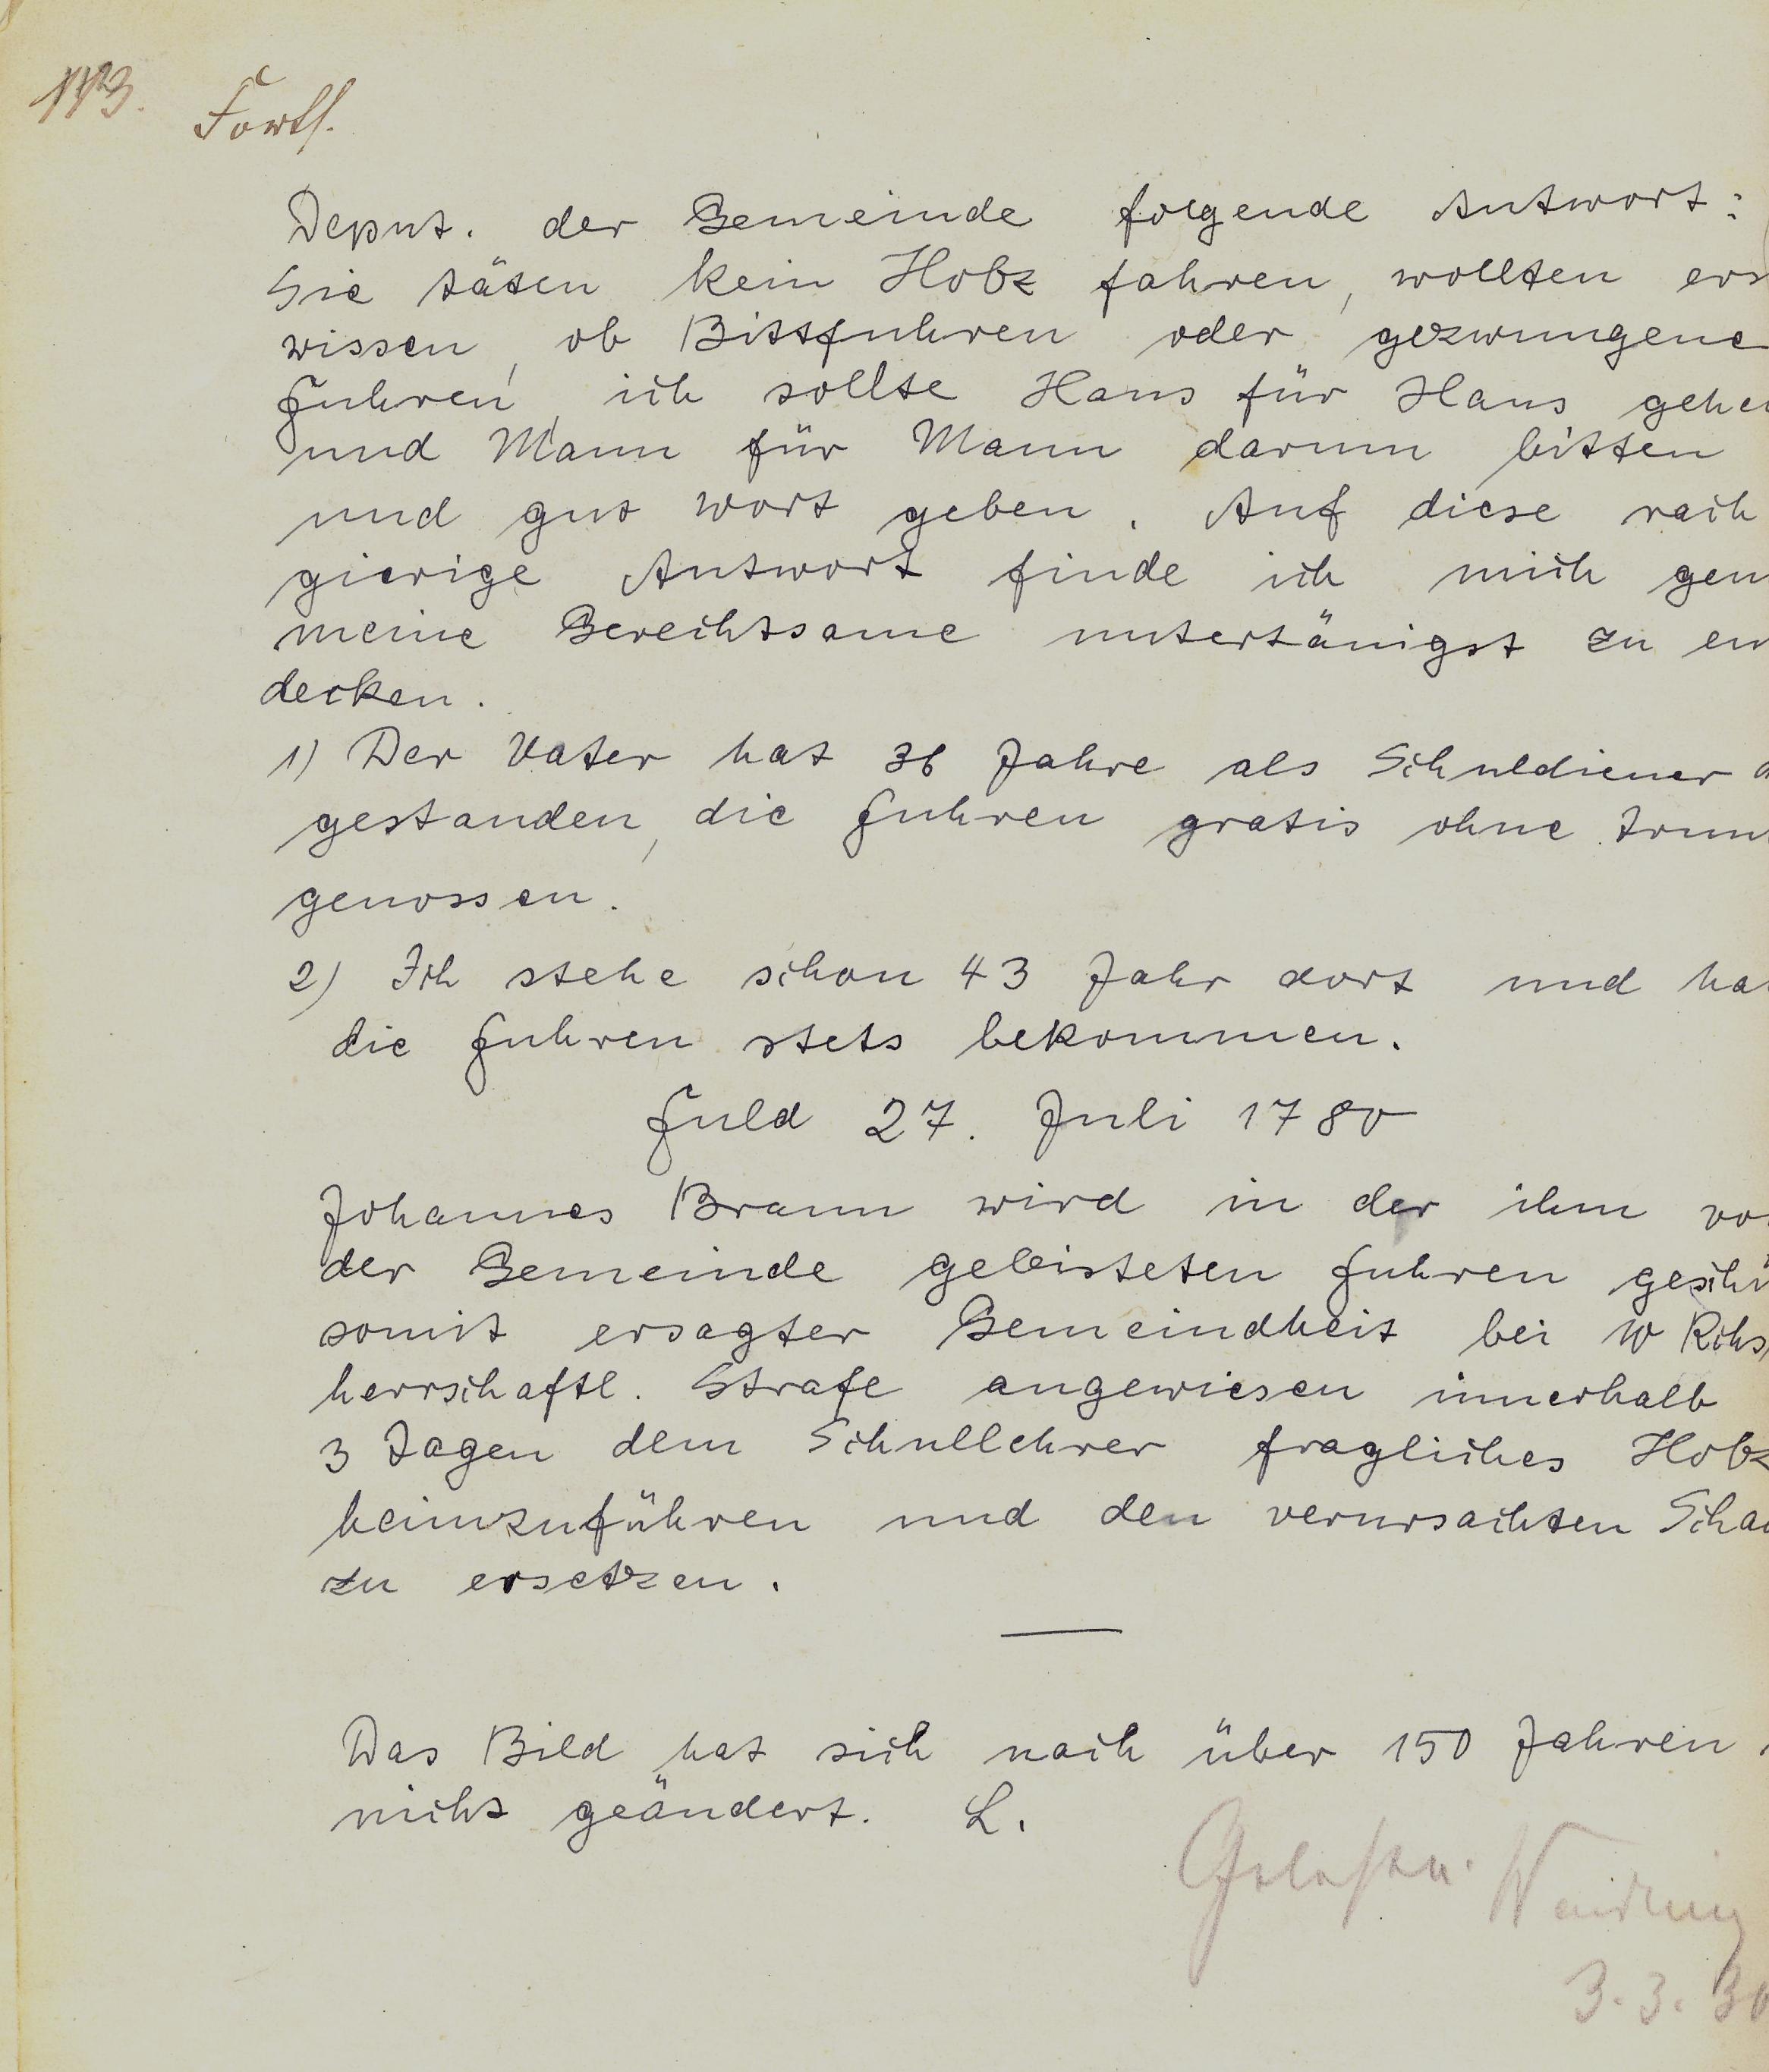 113. Forts.
Deput. der Gemeinde folgende Antwort:
Sie täten kein Holz fahren, wollten ers
wissen, ob Bittfuhren oder gezwungene
Fuhren, ich sollte Haus für Haus gehe
und Mann für Mann darum bitten
und gut wort geben. Auf diese rach
gierige Antwort finde ich mich gen
meine Gerechtsame untertänigst zu en
decken.
1) Der Vater hat 36 Jahre als Schuldiener d
gestanden, die Fuhren gratis ohne Trun
genossen.
2) Ich stehe schon 43 Jahr dort und ha
die Fuhren stets bekommen.
Fuld 27. Juli 1780
Johannes Braun wird in der ihm vo
der Gemeinde geleisteten Fuhren geschü
somit ersagter Gemeindheit bei 10 Rths
herrschaftl. Strafe angewiesen innerhalb
3 Tagen dem Schullehrer fragliches Holz
heimzuführen und den verursachten Scha
zu ersetzen.
Das Bild hat sich nach über 150 Jahren
nicht geändert. L.
Gelesen.
3.3.30